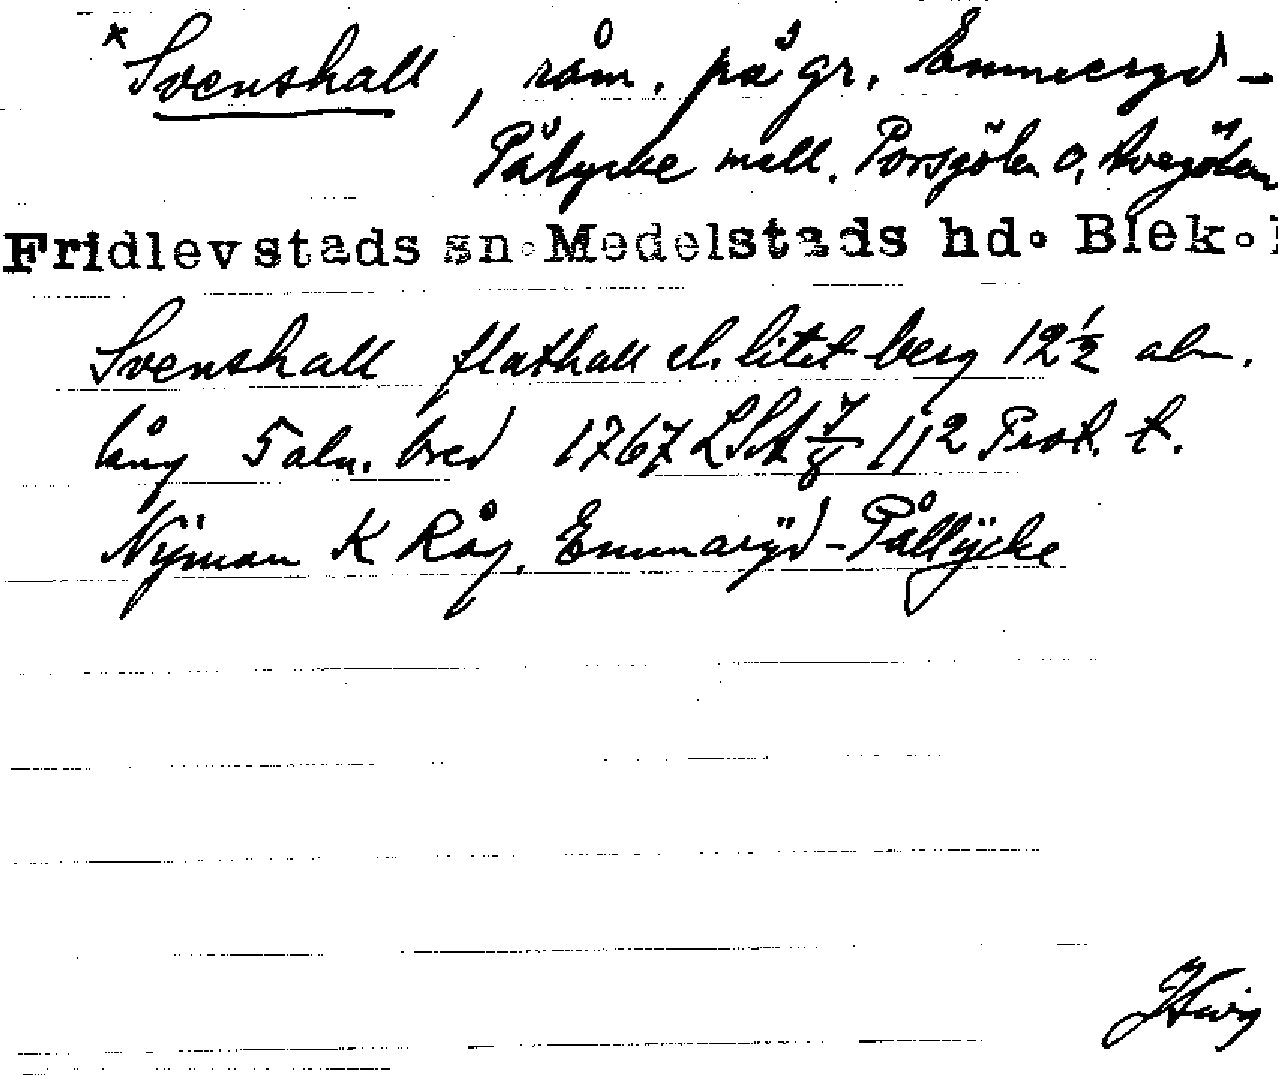 *Svenshall, råm. på gr. Emmeryd-
Pålycke mell. Porsgölen o.
Fridlevstads sn. Medelstads hd. Blek.
Svenshall flathall el. litet berg 12½ aln.
lång 5 aln. bred 1767 LSA 112 Prot. t.
Nyman K Råg. Emmaryd-Pållycke